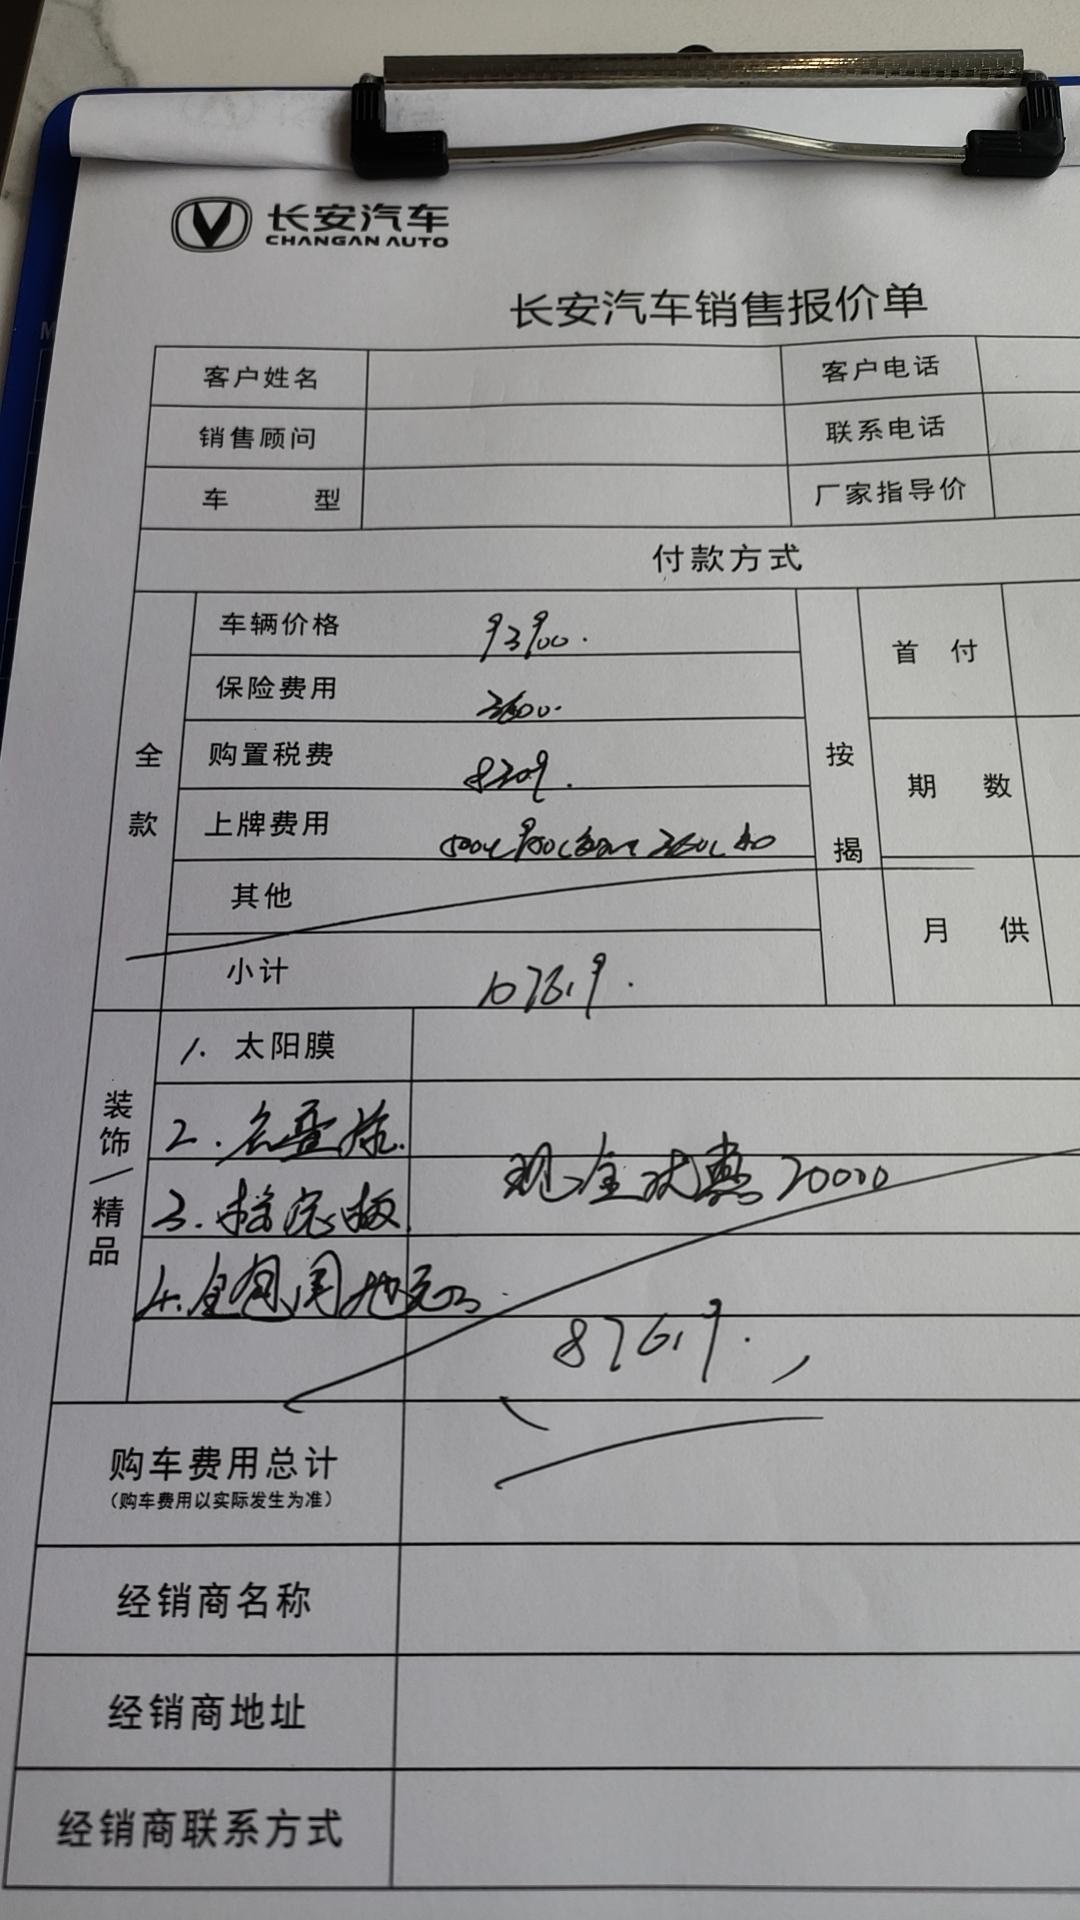 长安汽车
CHANGAN AUTO
长安汽车销售报价单
客户姓名 客户电话
销售顾问 联系电话
车 型 厂家指导价
付款方式
全款 按揭
车辆价格 93900.
首 付
保险费用 3600.
购置税费 8309.
期 数
上牌费用
其他
月 供
小计 107619.
装饰/精品
1. 太阳膜
2.
现金优惠 20000
3.
4. 全包围地
87619.
购车费用总计
(购车费用以实际发生为准)
经销商名称
经销商地址
经销商联系方式